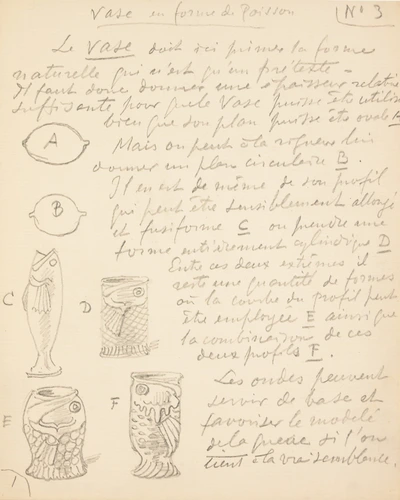 Vase en forme de Poisson
N° 3
Le Vase doit ici primer la forme
naturelle qui n'est qu'un prétexte -
Il faut donc donner une épaisseur relative
suffisante pour que le Vase puisse être utilisé
bien que son plan puisse être ovale A
Mais on peut à la rigueur lui
donner un plan circulaire B.
Il en est de même de son profil
qui peut être sensiblement allongé
et fusiforme C ou prendre une
forme entièrement cylindrique D
Entre ces deux extrêmes il
reste une quantité de formes
où la courbe du profil peut
être employée E ainsi que
la combinaison de ces
deux profils F.
Les ondes peuvent
servir de base et
favoriser le modelé
de la queue si l'on
tient à la vraisemblance.
A
B
C
D
E
F